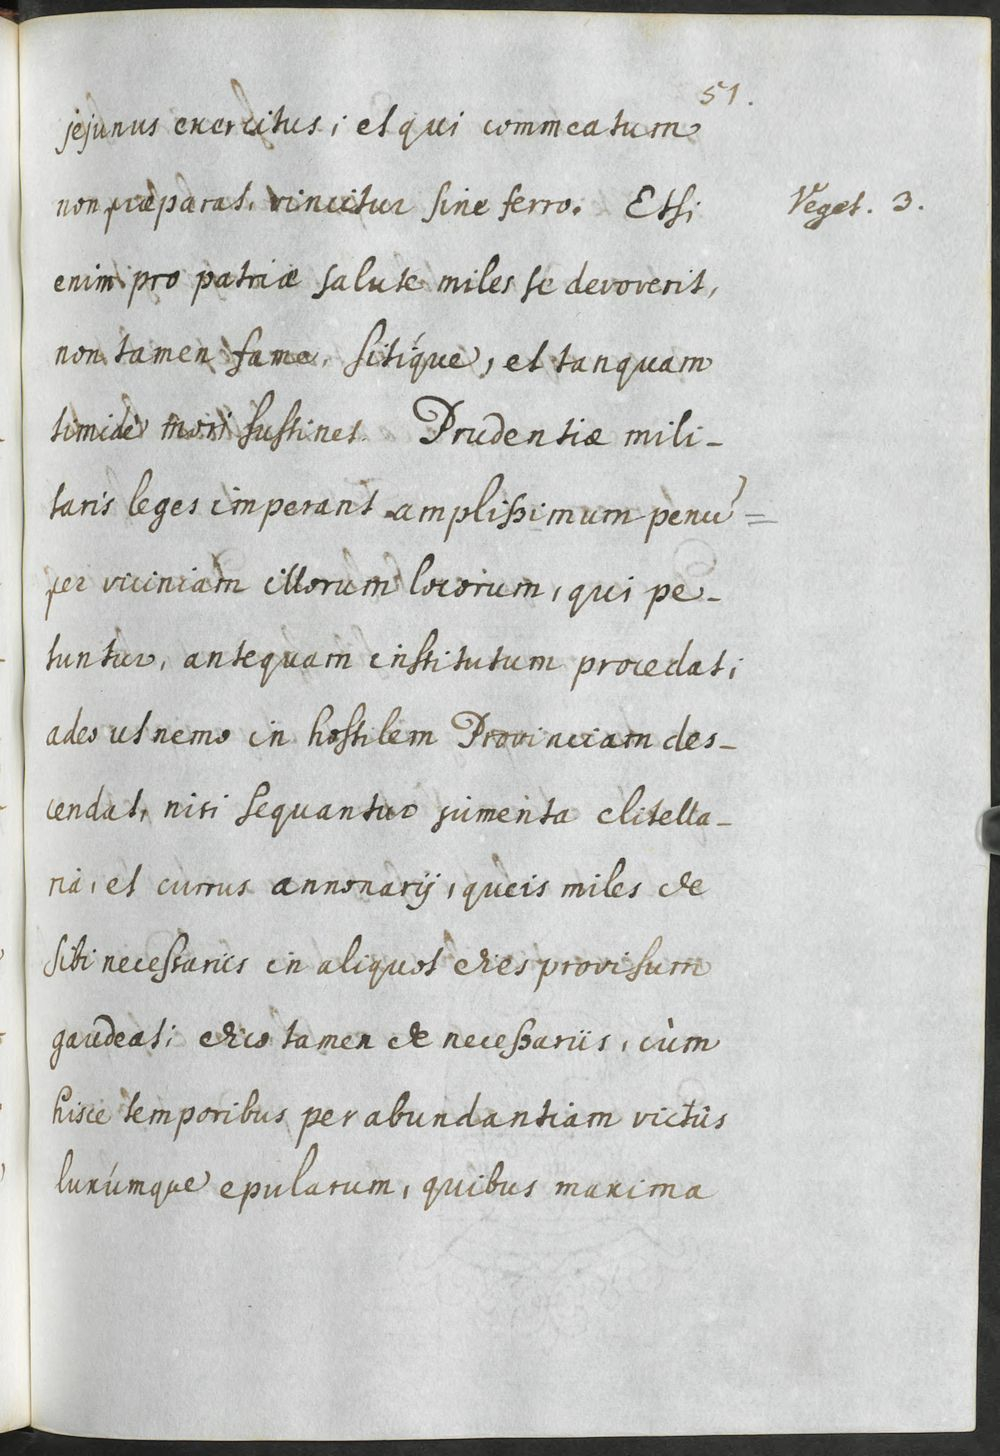 51.
jejunus exercitus; et qui commeatum
non præparat, vincitur sine ferro. Etsi
Veget. 3.
enim pro patriæ salute miles se devoverit,
non tamen fame, sitíque, et tanquam
timidè mori sustinet. Prudentiæ mili-
taris leges imperant amplissimum penu'=
per viciniam illorum locorum, qui pe-
tuntur, antequam institutum procedat;
adeo ut nemo in hostilem Provinciam des-
cendat, nisi sequantur jumenta clitella-
ria, et currus annonarij, queis miles de
sibi necessariis in aliquot dies provisum
gaudeat; dico tamen de necessariis, cùm
hisce temporibus per abundantiam victûs
luxúmque epularum, quibus maxima